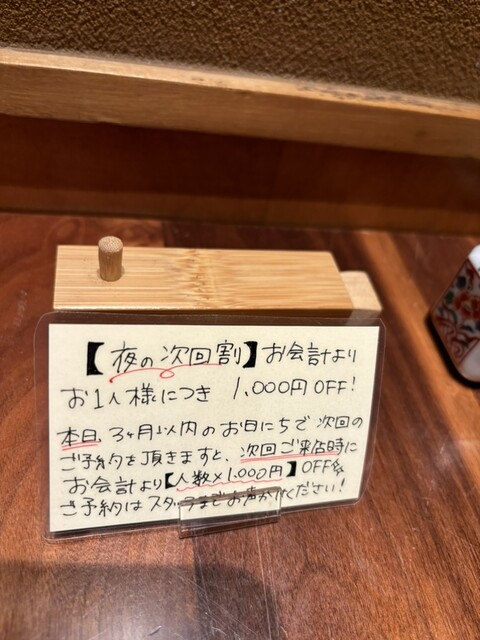 【夜の次回割】お会計より
お1人様につき 1,000円OFF!
本日、3ヶ月以内のお日にちで次回の
ご予約を頂きますと、次回ご来店時に
お会計より【人数×1,000円】OFF&
ご予約はスタッフまでお声がけください!